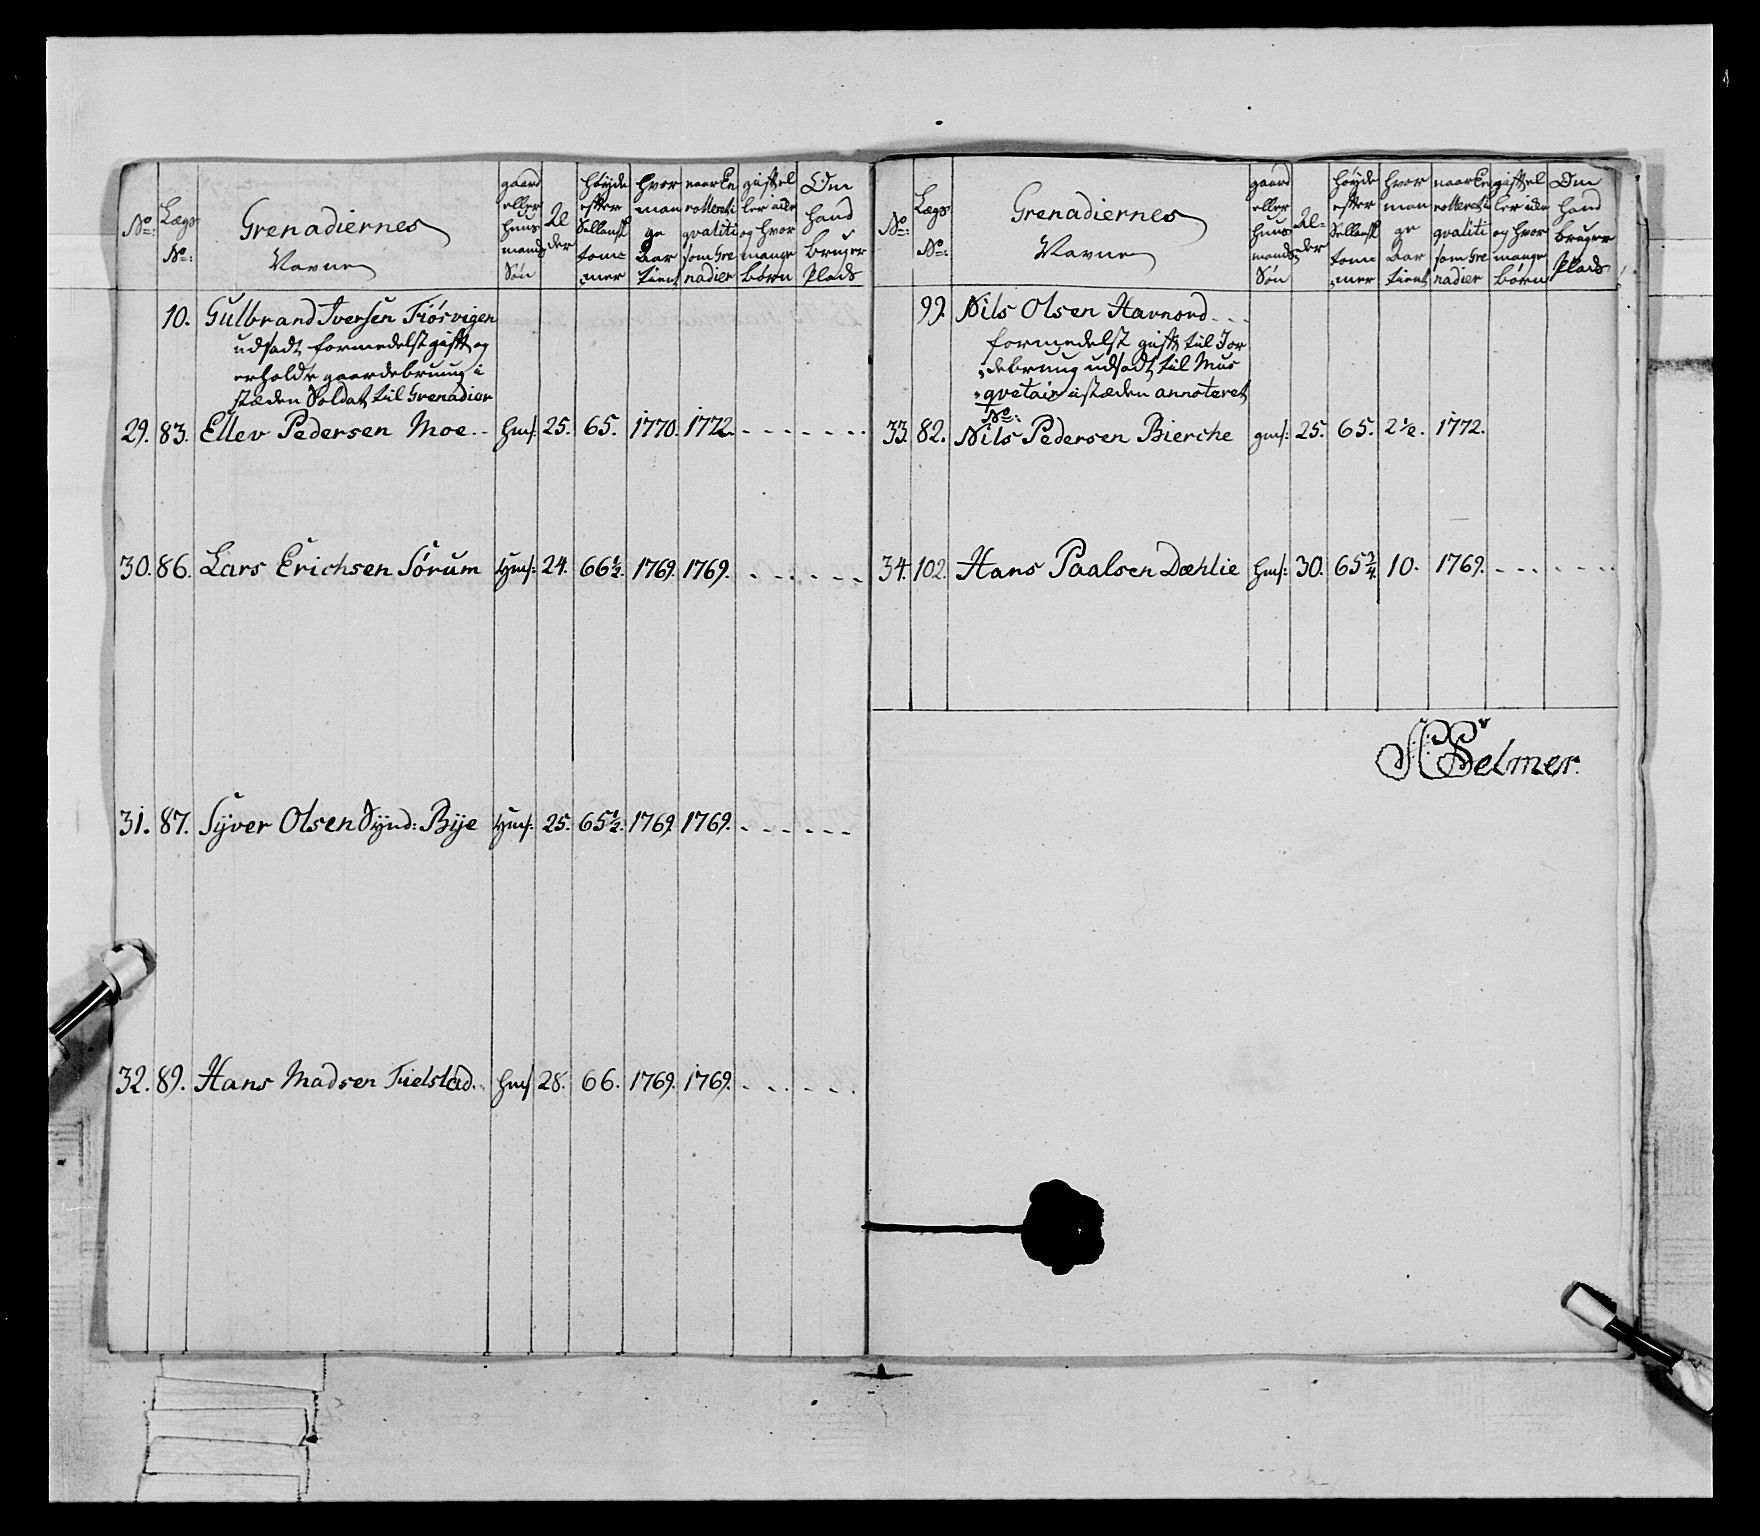 No: Lægs No: Grenadiernes Navne gaard eller huus mands Søn Al der høyde efter Sellansk tom mer hvor man ge Aar tient naar En rollereti qvaliti som Gre nadier gift el ler ide og hvor mange børn Om hand bruger Plads
10. Gulbrand Iversen Tiøsvigen
udsadt formedelst gift og
erholdt gaardebruug i
stæden Soldat til Grenadier
29. 83. Ellev Pedersen Moe.. hms: 25. 65. 1770. 1772.
30. 86. Lars Erichsen Sørum hms: 24. 66 1/2. 1769. 1769.
31. 87. Syver Olsen Synd: Bye hms: 25. 65 1/2. 1769 1769.
32. 89. Hans Madsen Fielstad.. hms 28. 66. 1769. 1769.
No: Lægs No: Grenadiernes Navne gaard eller huus mands Søn Al- der høyde efter Sellansk tom mer hvor man ge Aar tient naar En rollereti qvaliti som Gre nadier gift el ler ide og hvor mange børn Om hand bruger Plads
99. Nils Olsen Havnord...
formedelst gift til Jor
debruug udsadt til Mus
qvetair istæden annoteret
No:
33. 82. Nils Pedersen Bierche gms: 25. 65. 2 1/2. 1772.
34. 102. Hans Paalsen Dæhlie hms: 30. 65 3/4 10. 1769.
Selmer.